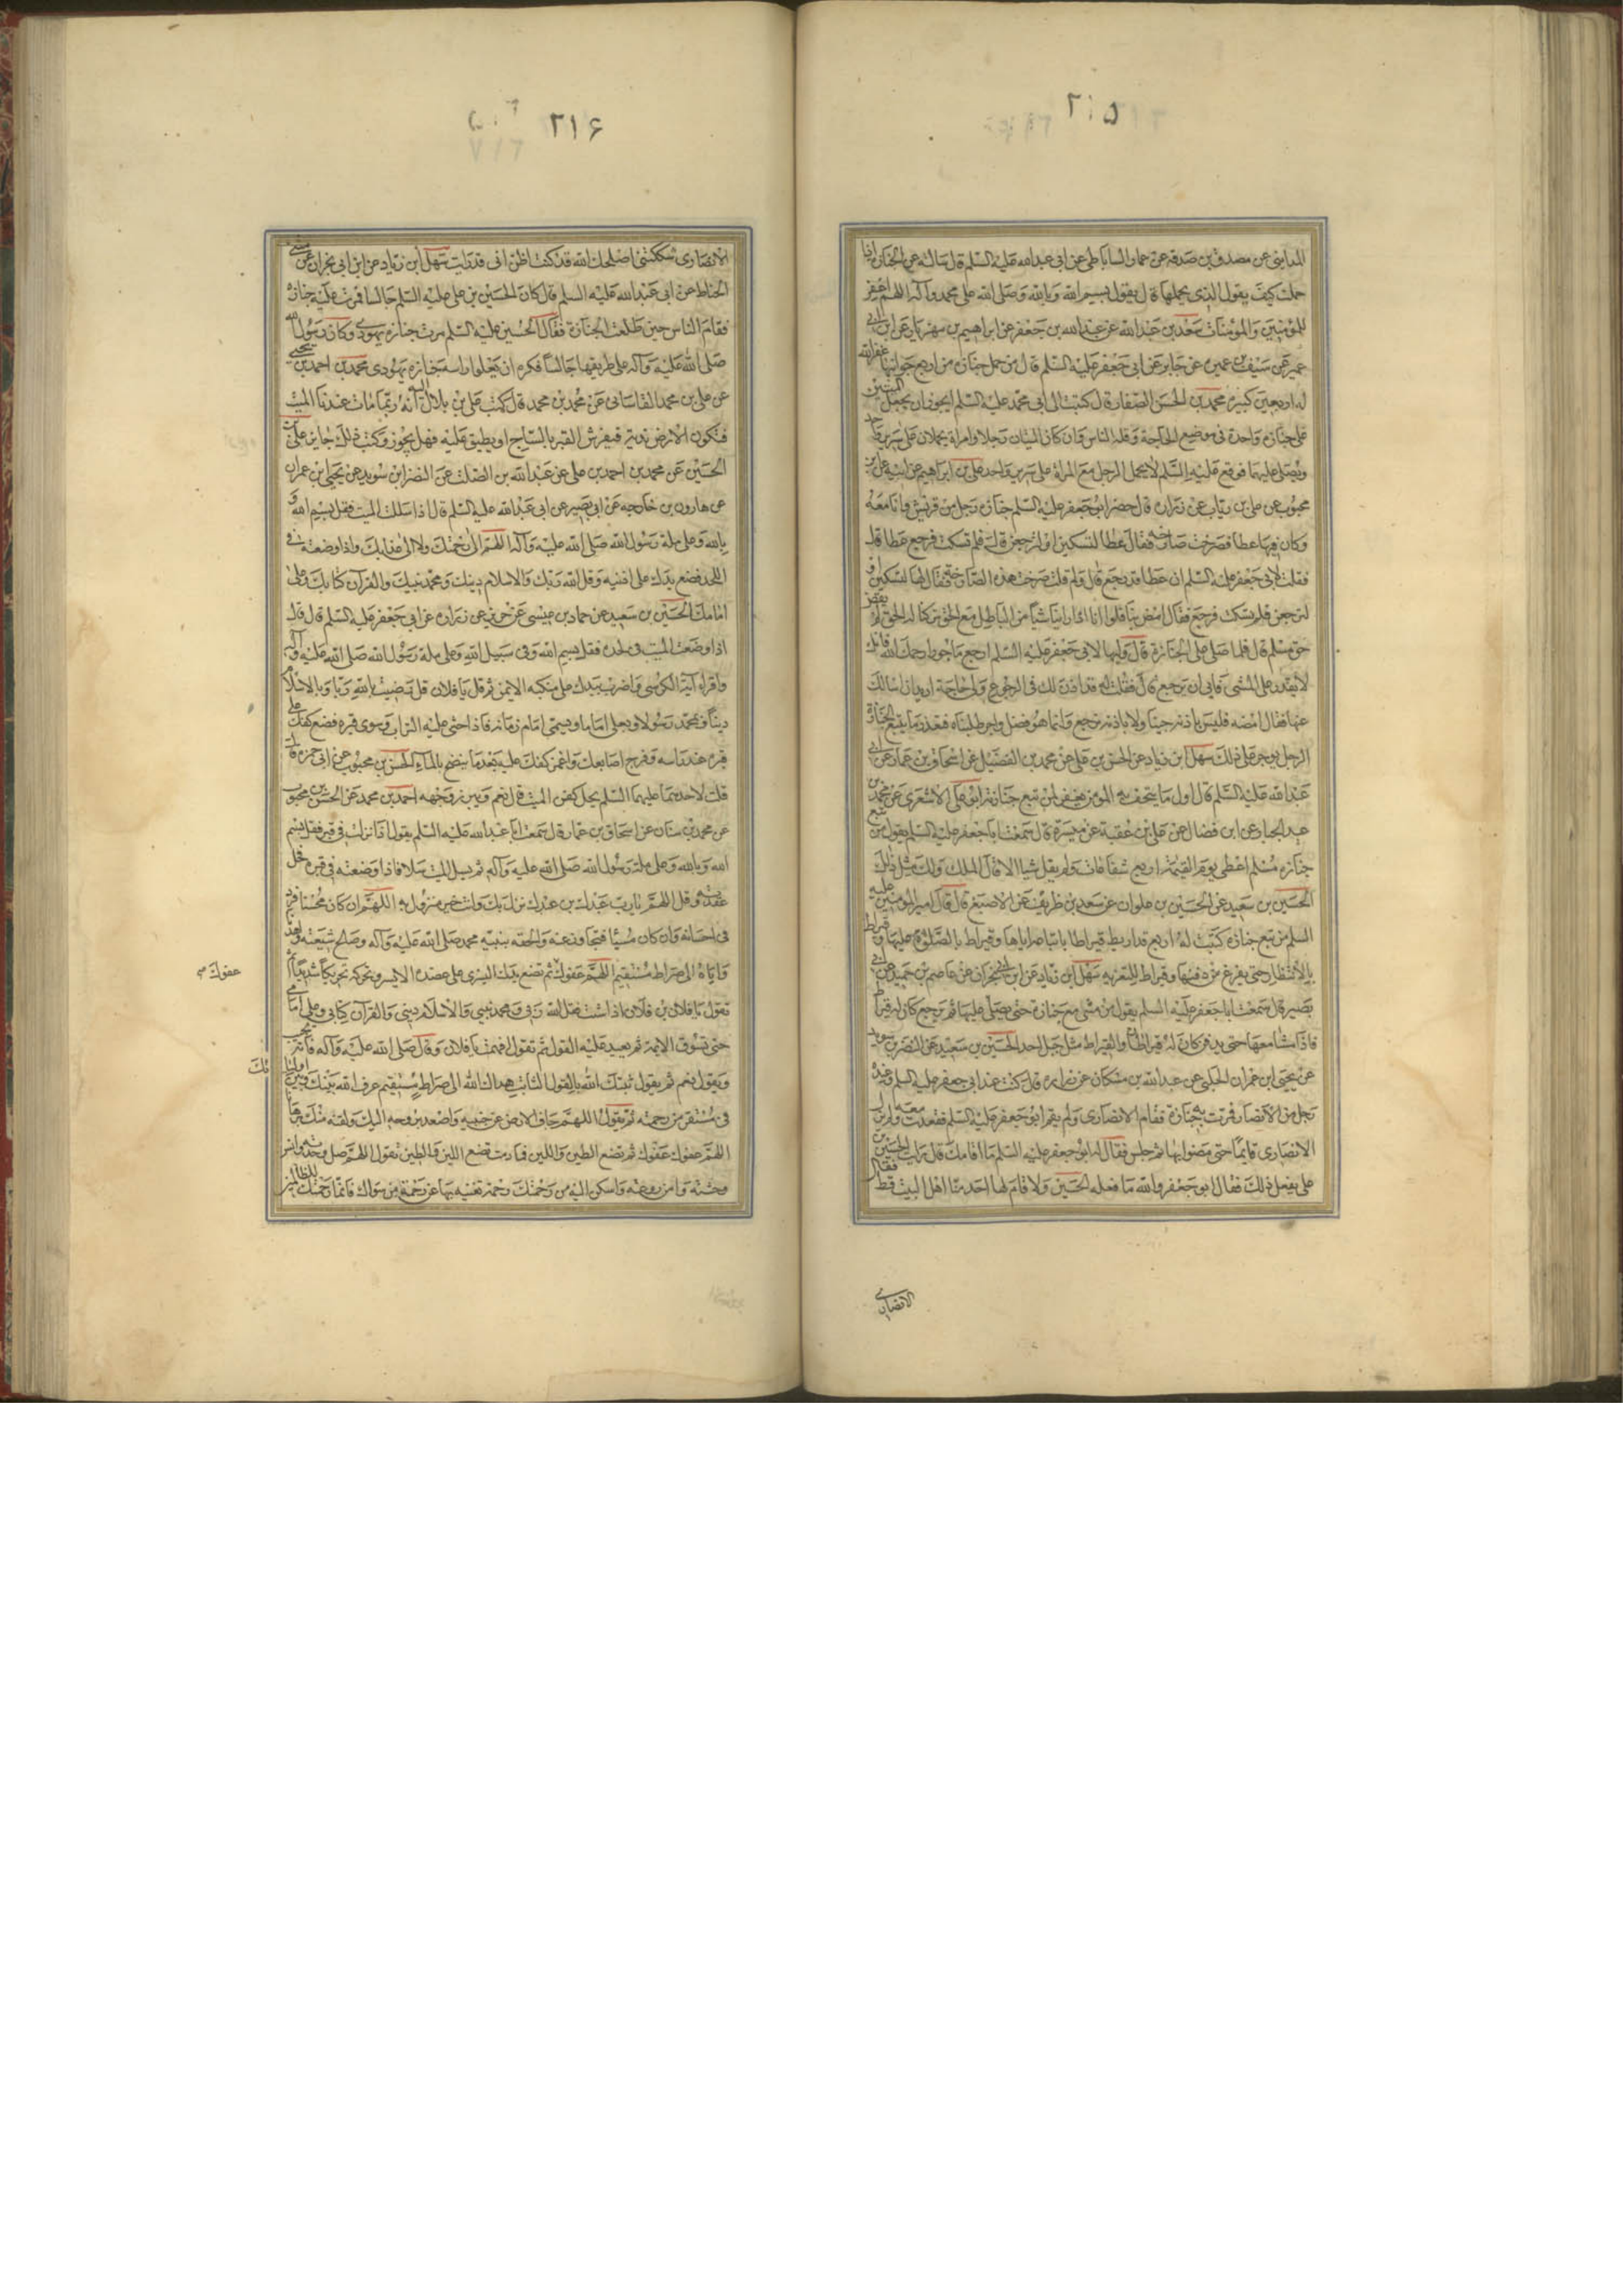 ٢١٥
المدايني عن مصدق بن صدقه عن عمار الساباطي عن ابي عبد الله عليه السلم قال سالته عن الجنازة اذا
حملت كيف يقول الذي يحملها قال يقول بسم الله وبالله وصلى الله على محمد وآله اللهم اغفر
للمؤمنين والمؤمنات سعد بن عبد الله عن عبد الله بن جعفر عن ابراهيم بن مهزيار عن ابن ابي
عمير عن سيف بن عميرة عن جابر عن ابي جعفر عليه السلم قال من حمل جنازه من اربع جوانبها غفر الله
له اربعين كبيرة محمد بن الحسن الصفار قال كتبت الى ابي محمد عليه السلم ايجوز ان يجعل الميتين
على جنازة واحدة في موضع الحاجة وقلة الناس وان كان الميتان رجلا وامراة يحملان على سرير واحد
ويصلى عليهما فوقع عليه السلم لا يحمل الرجل مع المراة على سرير واحد علي بن ابراهيم عن ابيه عن ابن
محبوب عن علي بن رئاب عن زرارة قال حضر ابو جعفر عليه السلم جنازة رجل من قريش وانا معه
وكان فيها عطا فصرخت صارخه فقال عطا لتسكتين او لنرجعن قال فلم تسكت فرجع عطا قال
فقلت لابي جعفر عليه السلم ان عطا قد رجع قال ولم قلت صرخت هذه الصارخة فقال لها لتسكتين او
لنرجعن فلم تسكت فرجع فقال امض بنا فلو انا اذا راينا شيأ من الباطل مع الحق تركنا له الحق لم نقض
حق مسلم قال فلما صلى على الجنازة قال وليها لابي جعفر عليه السلم ارجع ماجورا رحمك الله فانك
لا تقدر على المشي فابى ان يرجع قال فقلت له قد اذن لك في الرجوع ولي حاجة اريد ان اسالك
عنها فقال امضه فليس باذنه جينا ولا باذنه نرجع وانما هو فضل واجر طلبناه فبقدر ما يتبع الجنازة
الرجل يوجر على ذلك سهل ابن زياد عن الحسن بن علي عن محمد بن الفضيل عن اسحاق بن عمار عن ابي
عبد الله عليه السلم قال اول ما يتحف به المومن يغفر لمن تبع جنازته ابو علي الاشعري عن محمد بن
عبد الجبار عن ابن فضال عن علي بن عقبة عن ميسرة قال سمعت ابا جعفر عليه السلم يقول من تبع
جنازة مسلم اعطي يوم القيمة اربع شفاعات ولم يقل شيا الا قال الملك ولك مثل ذلك
الحسين بن سعيد عن الحسين بن علوان عن سعد بن ظريف عن الاصبغ قال قال امير المومنين عليه
السلم من تبع جنازه كتبت له اربع قراريط قيراط باتباعه اياها وقيراط بالصلوة عليها وقيراط
بالانتظار حتى يفرغ من دفنها وقيراط للتعزيه سهل ابن زياد عن ابن ابي نجران عن عاصم بن حميد عن ابي
بصير قال سمعت ابا جعفر عليه السلم يقول من مشى مع جنازة حتى يصلى عليها ثم رجع كان له قيراط
فاذا مشا معها حتى يدفن كان له قيراطان والقيراط مثل جبل احد الحسين بن سعيد عن النضر بن سويد
عن يحيى ابن عمران الحلبي عن عبد الله بن مسكان عن زراره قال كنت عند ابي جعفر عليه السلم وعنده
رجل من الانصار فمرت به جنازة فقام الانصاري ولم يقم ابو جعفر عليه السلم فقعدت معه ولم يزل
الانصاري قايما حتى مضوا بها ثم جلس فقال له ابو جعفر عليه السلم ما اقامك قال رايت الحسين بن
علي يفعل ذلك فقال ابو جعفر والله ما فعله الحسين ولا قام لها احد منا اهل البيت قط فقال
الانصاري
٢١۶
الانصاري شككتني اصلحك الله قد كنت اظن اني قد رايت سهل ابن زياد عن ابن ابي نجران عن مثنى
الحناط عن ابي عبد الله عليه السلم قال كان الحسين بن علي عليه السلم جالسا فمرت عليه جنازه
فقام الناس حين طلعت الجنازة فقال الحسين عليه السلم مرت جنازه يهودي وكان رسول الله
صلى الله عليه وآله على طريقها جالسا فكره ان تعلوا راسه جنازه يهودي محمد بن احمد بن يحيى
عن علي بن محمد القاساني عن محمد بن محمد قال كتب علي بن بلال اليه انه ربما مات عندنا الميت
فتكون الارض ندية فيفرش القبر بالساج او يطبق عليه فهل يجوز فكتب ذلك جايز علي بن
الحسين عن محمد بن احمد بن علي عن عبد الله بن الصلت عن النضر ابن سويد عن يحيى ابن عمران
عن هارون بن خارجه عن ابي بصير عن ابي عبد الله عليه السلم قال اذا سللت الميت فقل بسم الله و
بالله وعلى ملة رسول الله صلى الله عليه وآله اللهم الى رحمتك ولا الى عذابك واذا وضعته في
اللحد فضع يدك على اذنيه وقل الله ربك والاسلام دينك ومحمد نبيك والقرآن كتابك وعلي
امامك الحسين بن سعيد عن حماد بن عيسى عن حريز عن زراره عن ابي جعفر عليه السلم قال قال
اذا وضعت الميت في لحده فقل بسم الله وفي سبيل الله وعلى ملة رسول الله صلى الله عليه وآله
واقرا آية الكرسي واضرب بيدك على منكبه الايمن ثم قل يا فلان قل رضيت بالله ربا وبالاسلام
دينا وبمحمد رسولا وبعلي اماما ويسمي امام زمانه فاذا حثي عليه التراب وسوى قبره فضع كفك على
قبره عند راسه وفرج اصابعك واغمز كفك عليه بعد ما ينضح بالماء الحسن بن محبوب عن ابي حمزه قال
قلت لاحدهما عليهما السلم يحل كفن الميت قال نعم ويبرز وجهه احمد بن محمد عن الحسن بن محبوب
عن محمد بن سنان عن اسحاق بن عمار قال سمعت ابا عبد الله عليه السلم يقول اذا نزلت في قبر فقل بسم
الله وبالله وعلى ملة رسول الله صلى الله عليه وآله ثم تسل الميت سلا فاذا وضعته في قبره فحل
عقدته وقل اللهم يا رب عبدك بن عبدك نزل بك وانت خير منزول به اللهم ان كان محسنا فزد
في احسانه وان كان مسيئا فتجاوز عنه والحقه بنبيه محمد صلى الله عليه وآله وصالح شيعته واهدنا
واياه الى صراط مستقيم اللهم عفوك ثم تضع يدك اليسرى على عضده الايسر وتحركه تحريكا شديدا ثم
عفوك
تقول يا فلان بن فلان اذا سئلت فقل الله ربي ومحمد نبيي والاسلام ديني والقرآن كتابي وعلي امامي
حتى تسوق الايمة ثم تعيد عليه القول ثم تقول افهمت يا فلان وقال صلى الله عليه وآله فانه يجيب
ويقول نعم ثم يقول ثبتك الله بالقول الثابت هداك الله الى صراط مستقيم عرف الله بينك وبين اوليائك
في مستقر من رحمته ثم تقول اللهم جاف الارض عن جنبيه واصعد بروحه اليك ولقنه منك برهانا
اللهم عفوك عفوك ثم تضع الطين واللبن فما دمت تضع اللبن والطين تقول اللهم صل وحدته وانس
وحشته وآمن روعته واسكن اليه من رحمتك رحمة تغنيه بها عن رحمة من سواك فانما رحمتك للظالمين